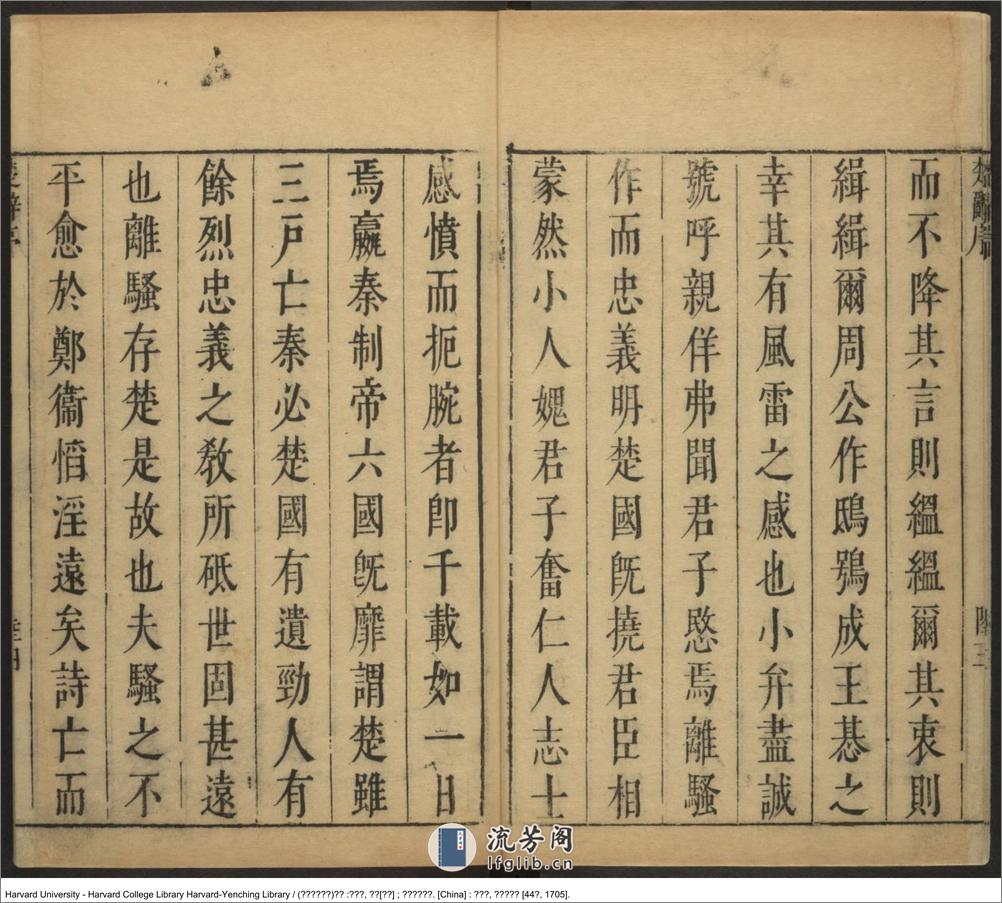 楚辭序
陸三
而不降其言則縕縕爾其衷則
緝緝爾周公作鴟鴞成王惎之
幸其有風雷之感也小弁盡誠
號呼親佯弗聞君子愍焉離騷
作而忠義明楚國旣撓君臣相
蒙然小人媿君子奮仁人志士
感憤而扼腕者卽千載如一日
焉嬴秦制帝六國旣靡謂楚雖
三戶亡秦必楚國有遺勁人有
餘烈忠義之敎所砥世固甚遠
也離騷存楚是故也夫騷之不
平愈於鄭衞慆淫遠矣詩亡而
流芳阁
lfglib.cn
Harvard University - Harvard College Library Harvard-Yenching Library / (??????)?? :???, ??[??] ; ??????. [China] : ???, ????? [44?, 1705].